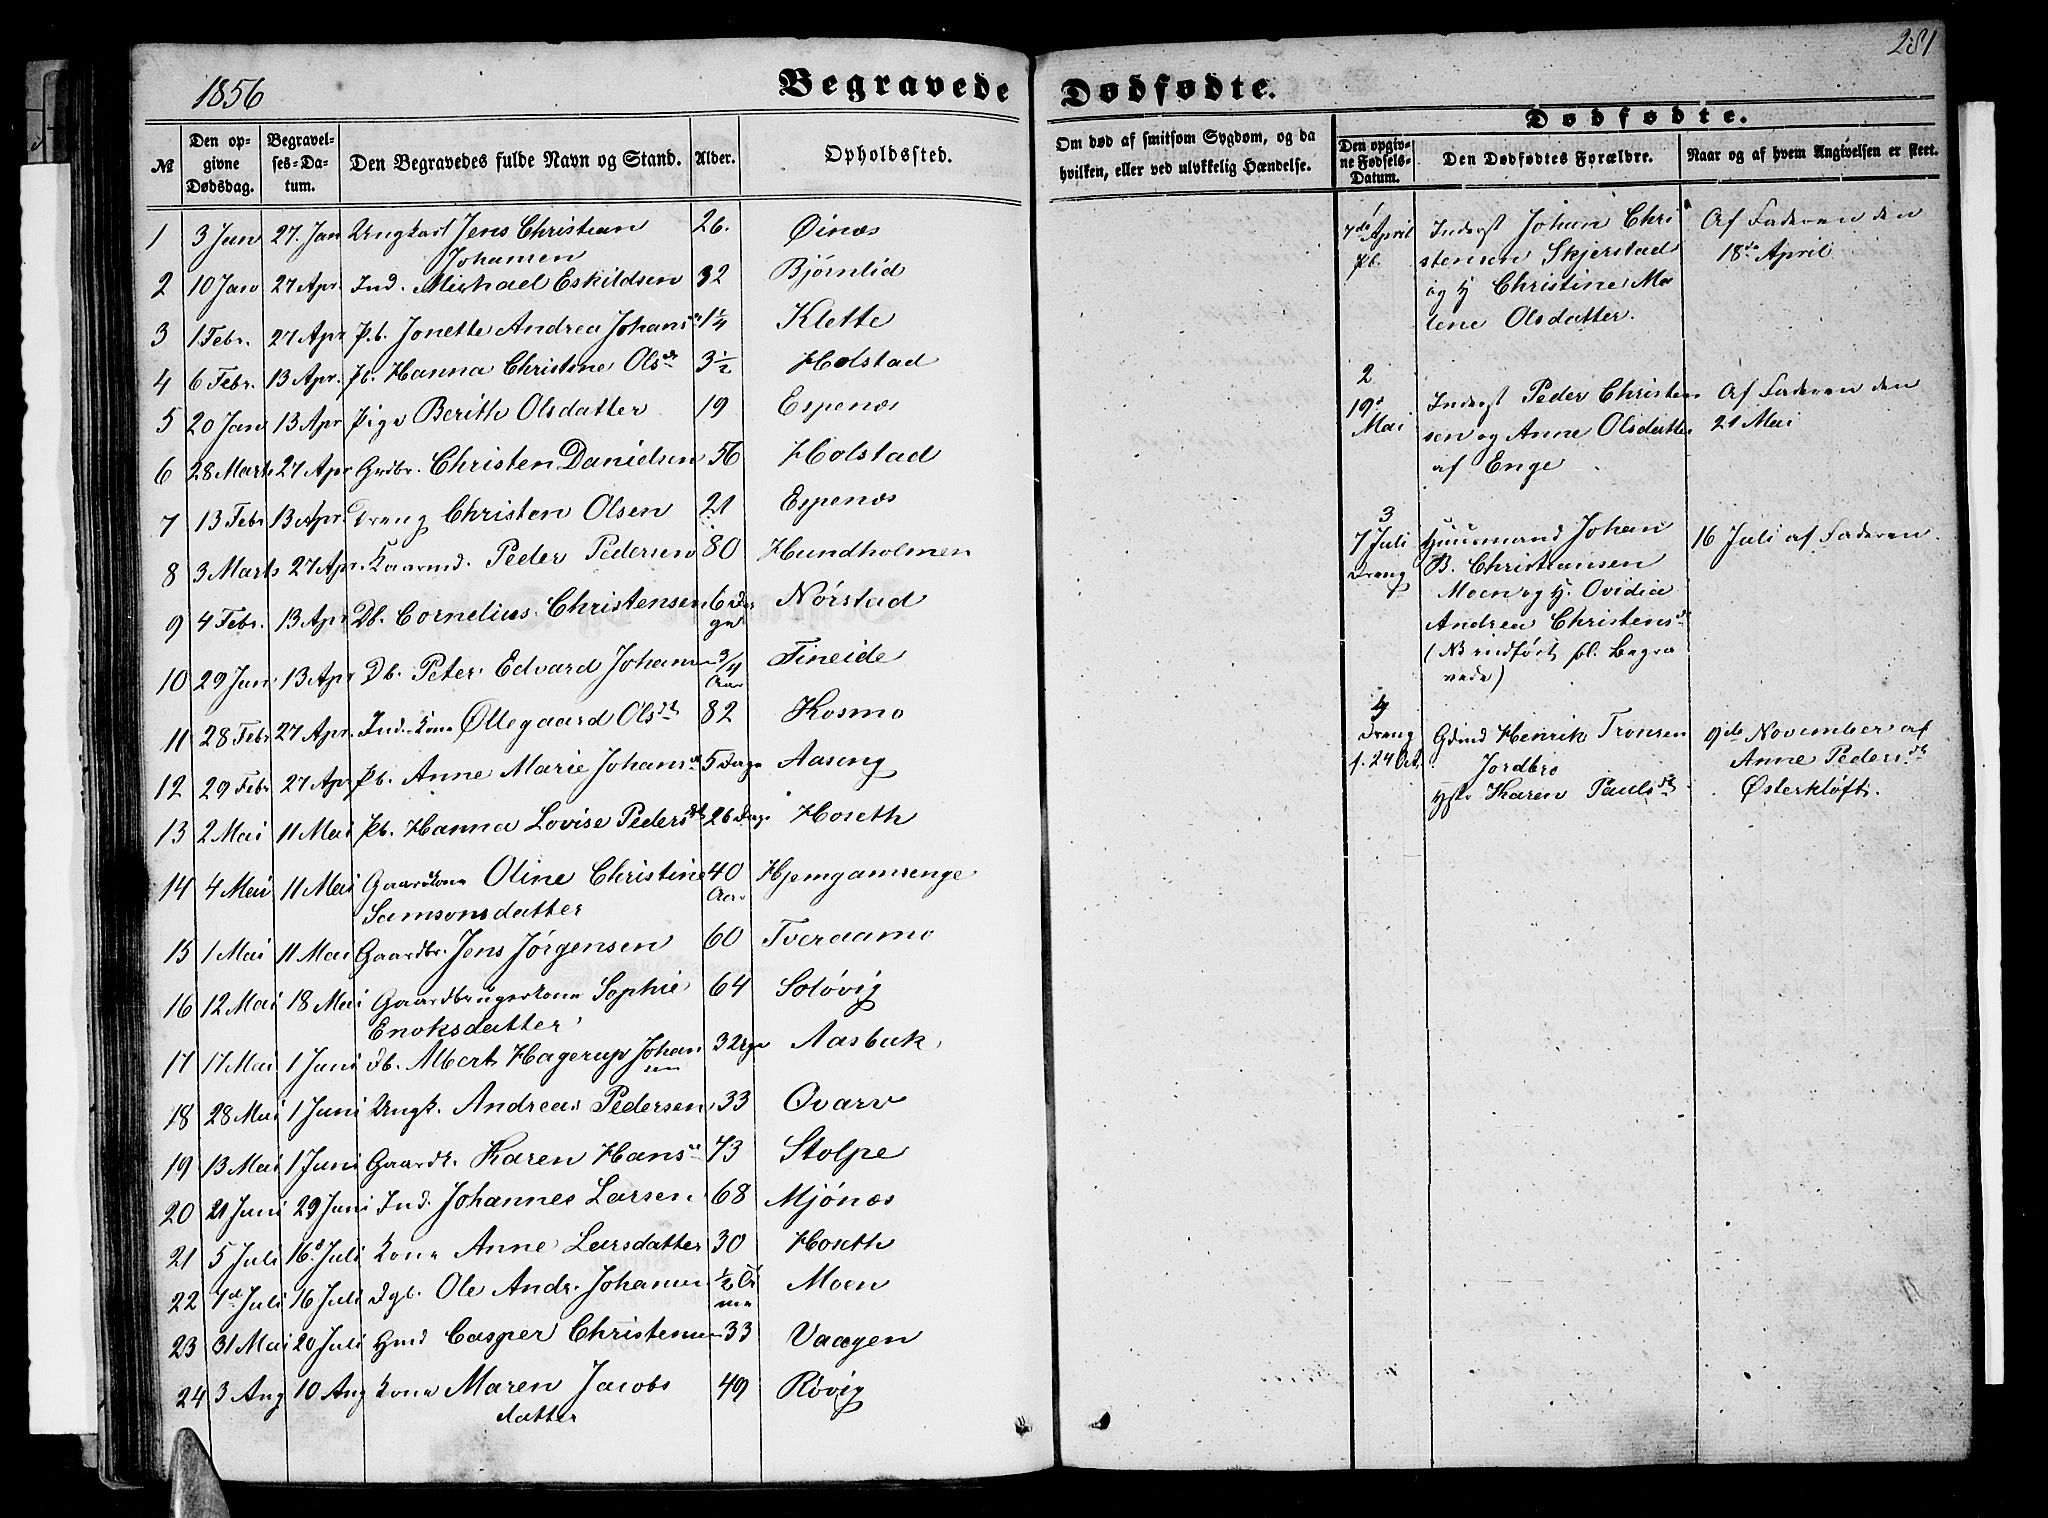 1856
Begravede
№
Den opgivne Dødsdag.
Begravelses-Datum.
Den Begravedes fulde Navn og Stand.
Alder.
Opholdssted.
1 3 Jan 27 Jan Ungkarl Jens Christian 26. Øinæs
Johansen
2 10 Jan 27 Apr. Ind. Michael Eskildsen 32 Bjørnlid
3 1 Febr. 27 Apr Pb. Jonette Andrea Johans 1¼ Klette
4 6 Febr. 13 Apr. Pb. Hanna Christine Olsdr 3½ Holstad
5 20 Jan 13 Apr Pige Berith Olsdatter 19 Espenæs
6 28 Marts 27 Apr Grdbr. Christen Danielsen 56 Holstad
7 13 Febr 13 Apr. Dreng Christen Olsen 21 Espenæs
8 3 Marts 27 Apr. Kaarmd. Peder Pedersen 80 Hundholmen
9 4 Febr. 13 Apr Db. Cornelius Christensen 6 Dage Nørstad
10 29 Jan 13 Apr Db. Peter Edvard Johansen 3/4 Aar Fineide
11 28 Febr 27 Apr. Ind. Kone Øllegaard Olsdt 82 Kosmo
12 29 Febr 27 Apr Pb. Anne Marie Johansdr 5 Dage Aaseng
13 2 Mai 11 Mai Pb. Hanna Lovise Pedersdtr 26 Dage Hoseth
14 4 Mai 11 Mai Gaardkone Oline Christine 40 Aar Hjemgamsenge
Samsonsdatter
15 1 Mai 11 Mai Gaardbr. Jens Jørgensen 60 Tveraamo
16 12 Mai 18 Mai Gaardbrugerkone Sophie 64 Soløvig
Enoksdatter
17 17 Mai 1 Juni Db. Albert Hagerup Johansen 3 Uger Aasbak
18 28 Mai 1 Juni Ungk. Andreas Pedersen 33 Qvarv
19 13 Mai 1 Juni Gaardk. Karen Hansdr 73 Stolpe
20 21 Juni 29 Juni Ind. Johannes Larsen 68 Mjønæs
21 5 Juli 16d Juli Kone Anne Larsdatter 30 Hoseth
22 7d Juli 16 Juli Dgb. Ole Andr. Johansen ½ Time Moen
23 31 Mai 20 Juli Hmd Casper Christensen 33 Vaagen
24 3 Aug 10 Aug Kone Maren Jacobs 49 Røvig
datter
281
Dødfødte.
Om død af smitsom Sygdom, og da
hvilken, eller ved ulykkelig Hændelse.
Dødfødte.
Den opgivne Fødsels-Datum.
Den Dødfødtes Forældre.
Naar og af hvem Angivelsen er skeet.
1
7de April Inderst Johan Chri Af Faderen den
Pb. stensen Skjerstad 18de April
og H Christine Ma
lene Olsdatter.
2
19d Inderst Peder Christen Af Faderen den
Mai sen og Anne Olsdatter 21 Mai
af Enge
3
7 Juli Huusmand Johan 16 Juli af Faderen.
Dreng B. Christiansen
Moen og H. Ovidia
Andrea Christensdr
(NB indført bl. begra
vede)
4
Dreng Gdmd Henrik Tronsen 9de November af
f. 24 Oct. Jordbro Anne Pedersdtr
Hst. Karen Paulsdtr Østerkløft.